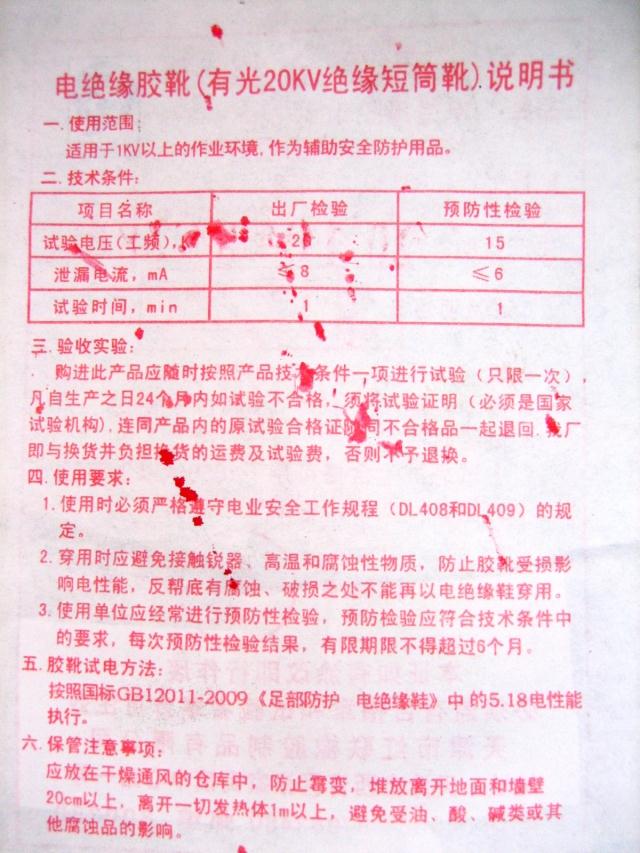 电绝缘胶靴(有光20KV绝缘短筒靴)说明书
一.使用范围:
适用于1KV以上的作业环境,作为辅助安全防护用品。
二.技术条件:
项目名称 出厂检验 预防性检验
试验电压(工频),K 20 15
泄漏电流,mA ≤8 ≤6
试验时间,min 1 1
三.验收实验:
购进此产品应随时按照产品技术条件一项进行试验(只限一次),
凡自生产之日24个月内如试验不合格,须将试验证明(必须是国家
试验机构).连同产品内的原试验合格证随同不合格品一起退回.我厂
即与换货并负担换货的运费及试验费,否则不予退换。
四.使用要求:
1.使用时必须严格遵守电业安全工作规程(DL408和DL409)的规
定。
2.穿用时应避免接触锐器、高温和腐蚀性物质,防止胶靴受损影
响电性能,反帮底有腐蚀、破损之处不能再以电绝缘鞋穿用。
3.使用单位应经常进行预防性检验,预防检验应符合技术条件中
的要求,每次预防性检验结果,有限期限不得超过6个月。
五.胶靴试电方法:
按照国标GB12011-2009《足部防护 电绝缘鞋》中的5.18电性能
执行。
六.保管注意事项:
应放在干燥通风的仓库中,防止霉变,堆放离开地面和墙壁
20cm以上,离开一切发热体1m以上,避免受油、酸、碱类或其
他腐蚀品的影响。